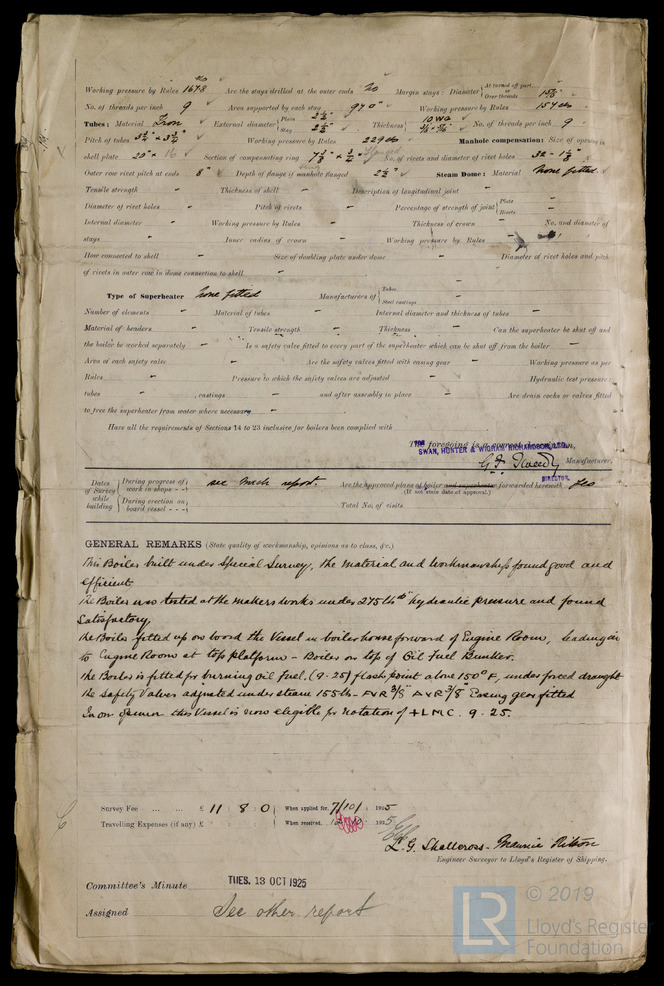 Working pressure by Rules 167.8 Are the stays drilled at the outer ends No Margin stays: Diameter { At turned off part, or Over threads 1 5/8"
No. of threads per inch 9 Area supported by each stay 97 □" Working pressure by Rules 157 lbs
Tubes: Material Iron External diameter { Plain 2 1/2" Stay 2 1/2" Thickness { 10 WG No. of threads per inch 9
Pitch of tubes 3 3/4" x 3 3/4" Working pressure by Rules 229 lbs Manhole compensation: Size of opening in
shell plate 20" x 16 Section of compensating ring No. of rivets and diameter of rivet holes 32 - 1 1/8"
Outer row rivet pitch at ends 8" Depth of flange if manhole flanged 2 1/2" Steam Dome: Material None fitted
Tensile strength - Thickness of shell - Description of longitudinal joint -
Diameter of rivet holes - Pitch of rivets - Percentage of strength of joint { Plate - Rivets -
Internal diameter - Working pressure by Rules - Thickness of crown - No. and diameter of
stays - Inner radius of crown - Working pressure by Rules -
How connected to shell - Size of doubling plate under dome - Diameter of rivet holes and pitch
of rivets in outer row in dome connection to shell -
Type of Superheater None fitted Manufacturers of { Tubes - Steel castings -
Number of elements - Material of tubes - Internal diameter and thickness of tubes -
Material of headers - Tensile strength - Thickness - Can the superheater be shut off and
the boiler be worked separately - Is a safety valve fitted to every part of the superheater which can be shut off from the boiler -
Area of each safety valve - Are the safety valves fitted with easing gear - Working pressure as per
Rules - Pressure to which the safety valves are adjusted - Hydraulic test pressure:
tubes - , castings - and after assembly in place - Are drain cocks or valves fitted
to free the superheater from water where necessary -
Have all the requirements of Sections 14 to 23 inclusive for boilers been complied with
The foregoing is a correct description,
FOR SWAN, HUNTER & WIGHAM RICHARDSON, LTD.
G. F. Tweedy Manufacturer.
DIRECTOR.
Dates of Survey while building { During progress of work in shops - - } see Mach report. Are the approved plans of boiler and superheater forwarded herewith Yes
(If not state date of approval.)
{ During erection on board vessel - - - } Total No. of visits
GENERAL REMARKS (State quality of workmanship, opinions as to class, &c.)
This Boiler built under Special Survey, the material and workmanship found good and
efficient
The Boiler was tested at the makers works under 275 lbs hydraulic pressure and found
Satisfactory,
The Boiler fitted up on board the Vessel in boiler house forward of Engine Room, leading in
to Engine Room at top platform - Boiler on top of Oil Fuel Bunker.
The Boiler is fitted for burning oil fuel. (9-25) flash point above 150°F, under forced draught
The Safety Valves adjusted under steam 155 lbs - F V R 3/8" A V R 3/8" Easing gear fitted
In our opinion this Vessel is now eligible for notation of + LMC. 9-25.
Survey Fee ... ... £ 11 : 8 : 0 When applied for, 7/10/ 1925
Travelling Expenses (if any) £ : : When received, 1925
L. G. Shallcross - Maurice Ritson
Engineer Surveyor to Lloyd's Register of Shipping.
Committee's Minute TUES. 13 OCT 1925
Assigned See other report
© 2019
LR Lloyd's Register
Foundation